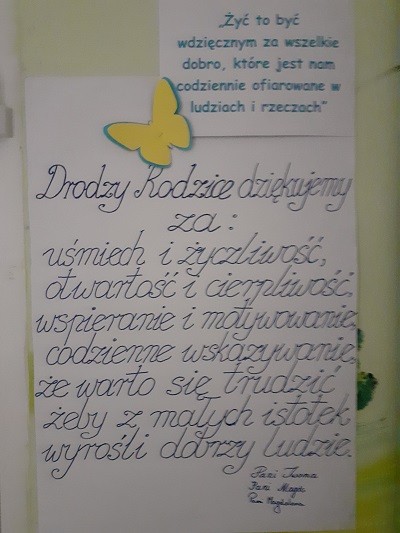 „Żyć to być
wdzięcznym za wszelkie
dobro, które jest nam
codziennie ofiarowane w
ludziach i rzeczach"
Drodzy Rodzice dziękujemy
za:
uśmiech i życzliwość,
otwartość i cierpliwość,
wspieranie i motywowanie,
codzienne wskazywanie,
że warto się trudzić
żeby z małych istotek
wyrośli dobrzy ludzie.
Pani Iwona
Pani Magda
Pani Magdalena